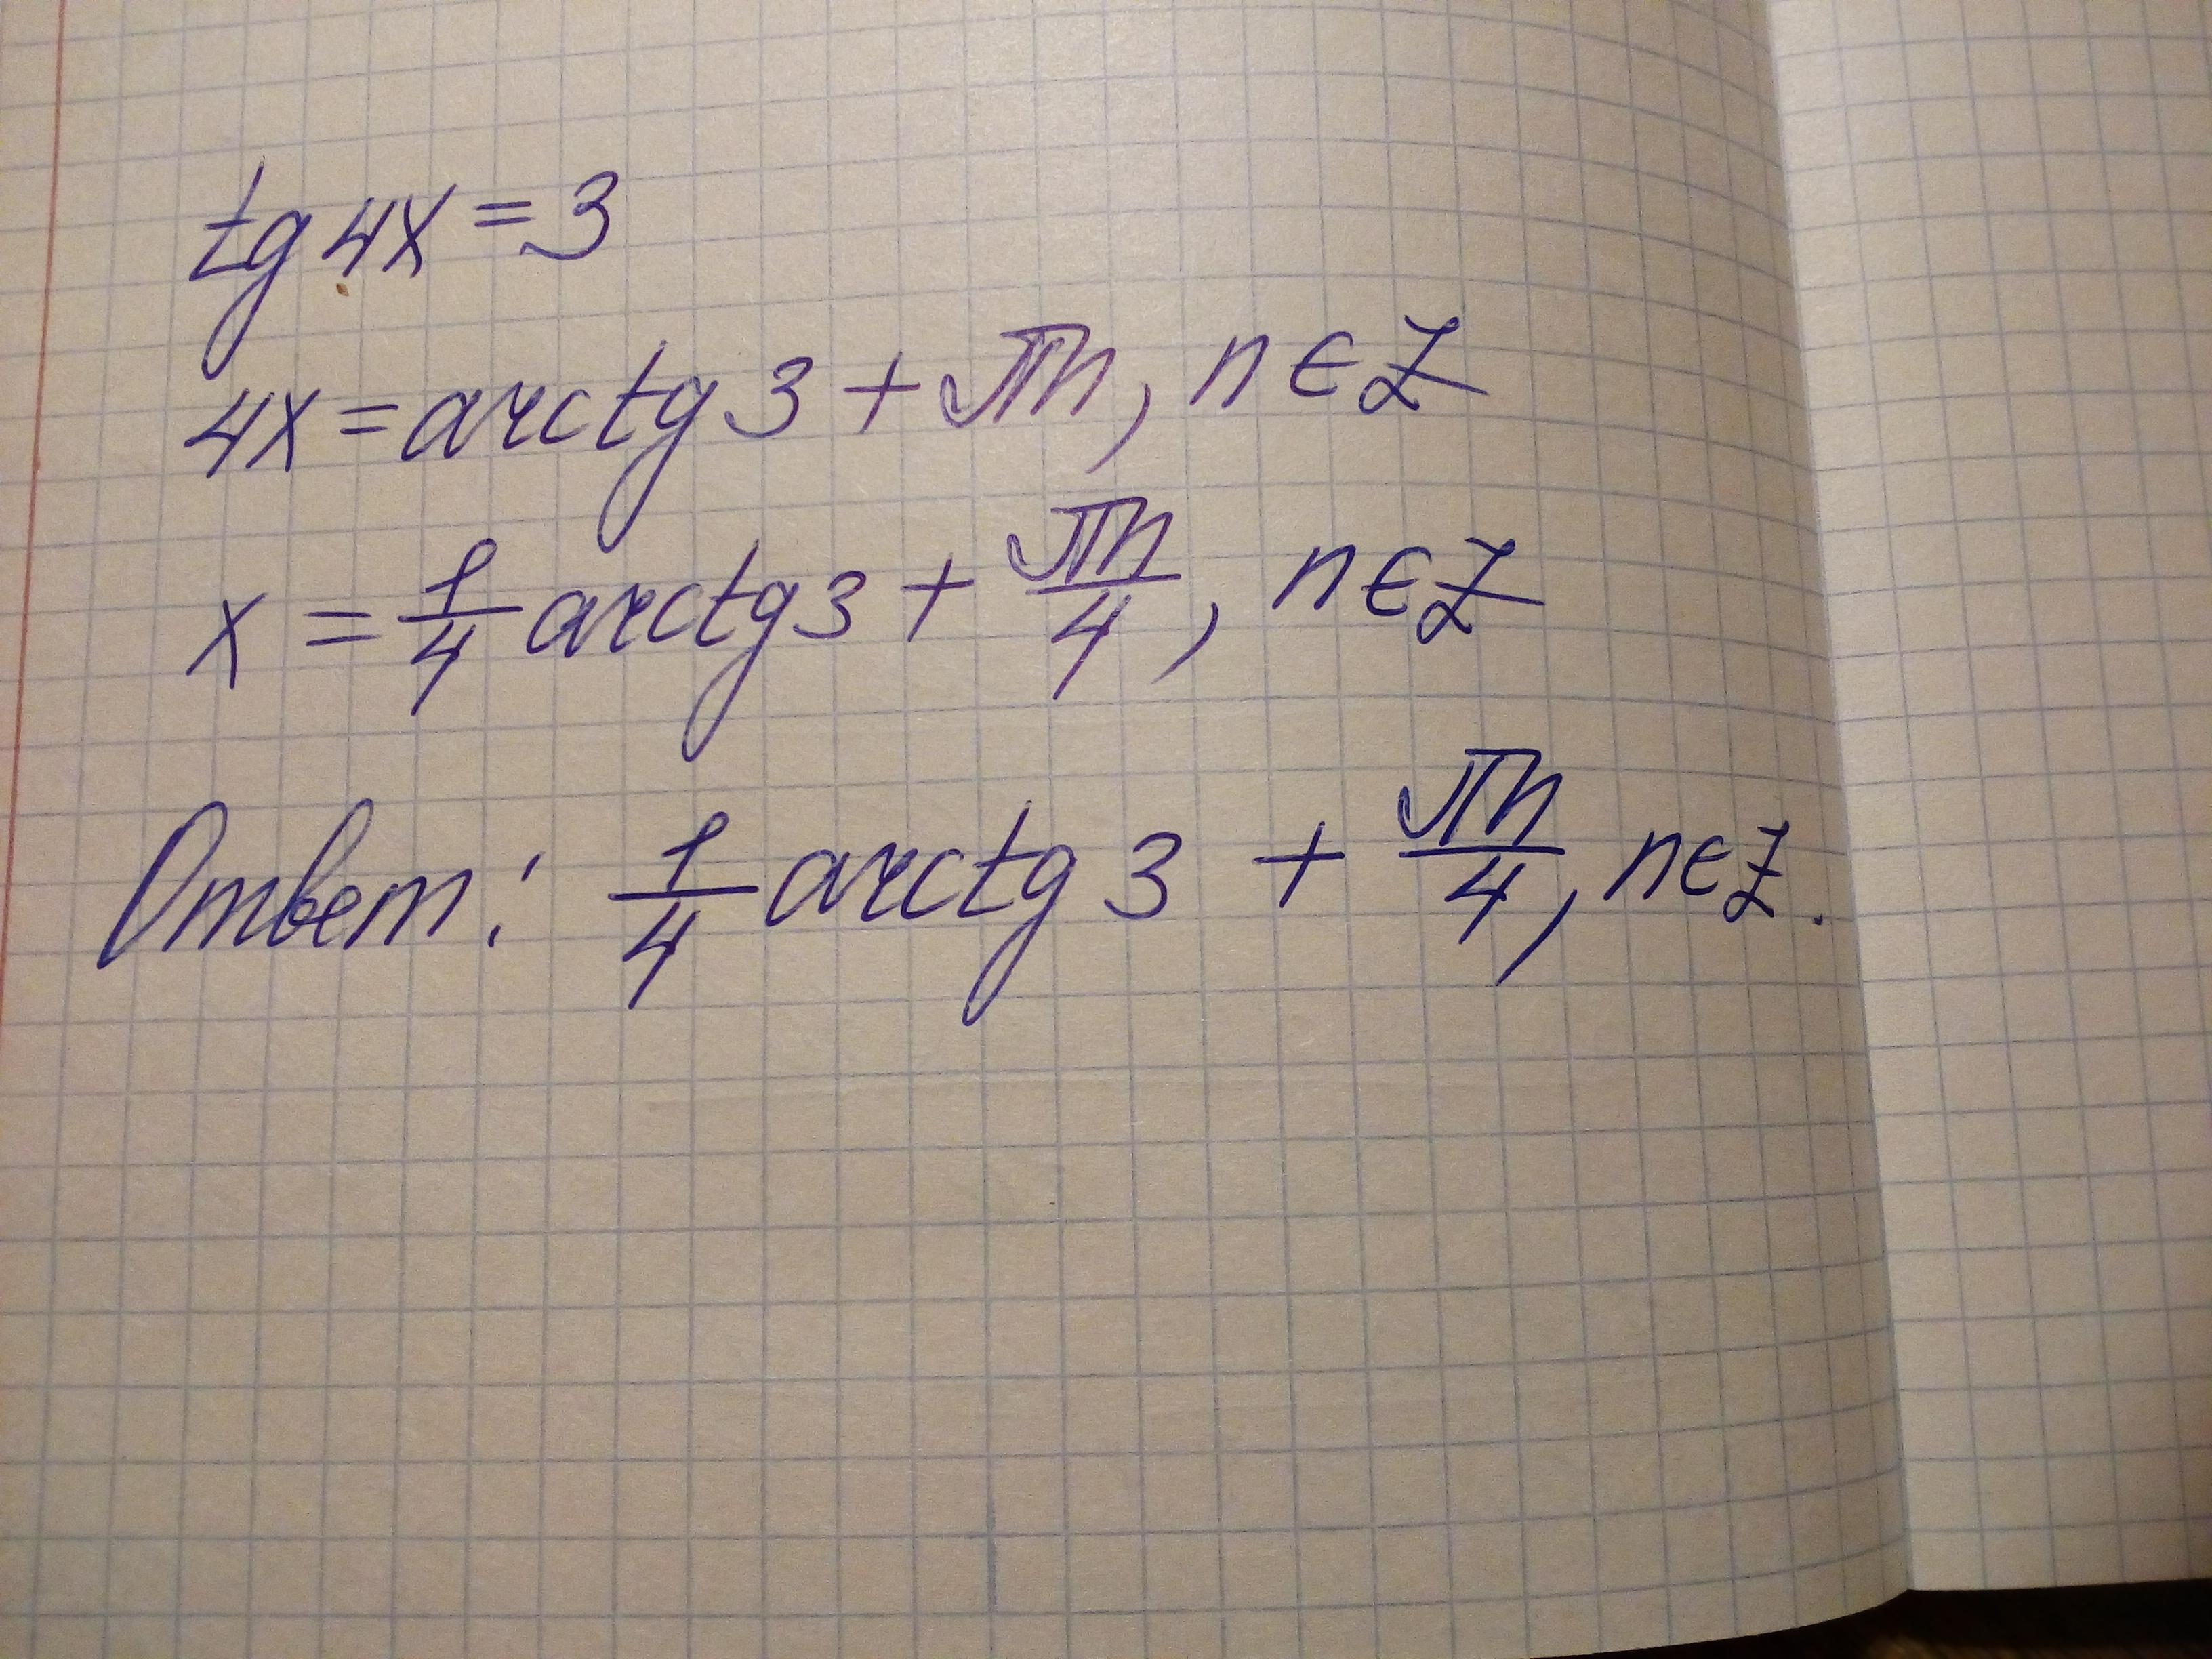 tg 4x = 3
4x = arctg 3 + πn, n ∈ Z
x = 1/4 arctg 3 + πn/4, n ∈ Z
Ответ: 1/4 arctg 3 + πn/4, n ∈ Z.